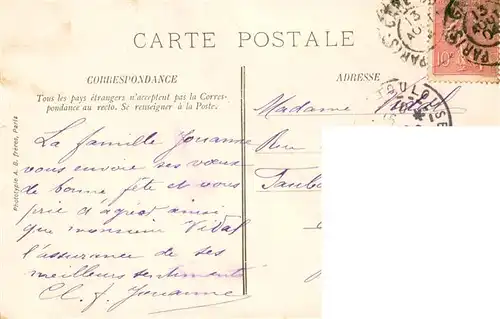 CARTE POSTALE
CORRESPONDANCE
Tous les pays étrangers n'acceptent pas la Corres-
pondance au recto. Se renseigner à la Poste.
La famille Jouanne
vous envoie ses vœux
de bonne fête et vous
prie d'agréer ainsi
que monsieur Vidal
l'assurance de ses
meilleurs sentiments
Cl. J. Jouanne
ADRESSE
Madame Vidal
Rue
Phototypie A. B. frères, Paris
10
13
PARIS
13
PARIS